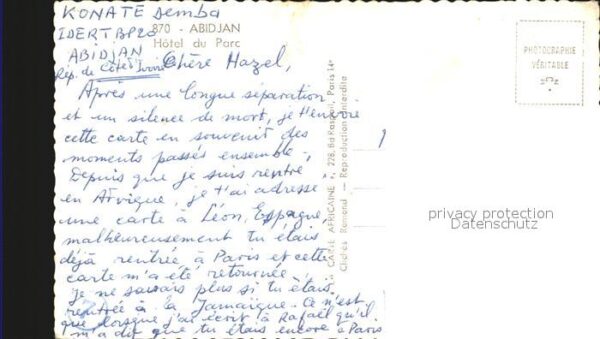 KONATE Demba
IDERT BP20
ABIDJAN
Rép. de Côte d'Ivoire
870 - ABIDJAN
Hôtel du Parc
Chère Hazel,
Après une longue séparation
et un silence de mort, je t'envoie
cette carte en souvenir des
moments passés ensemble.
Depuis que je suis rentré
en Afrique, je t'ai adressé
une carte à Léon, Espagne,
malheureusement tu étais
déjà rentrée à Paris et cette
carte m'a été retournée.
je ne savais plus si tu étais
rentrée à la Jamaïque. Ce n'est
que lorsque j'ai écrit à Rafaël qu'il
m'a dit que tu étais encore à Paris
"LA CARTE AFRICAINE", 228, Bd Raspail, Paris 14e
Clichés Ramond - Reproduction interdite
PHOTOGRAPHIE
VÉRITABLE
privacy protection
Datenschutz